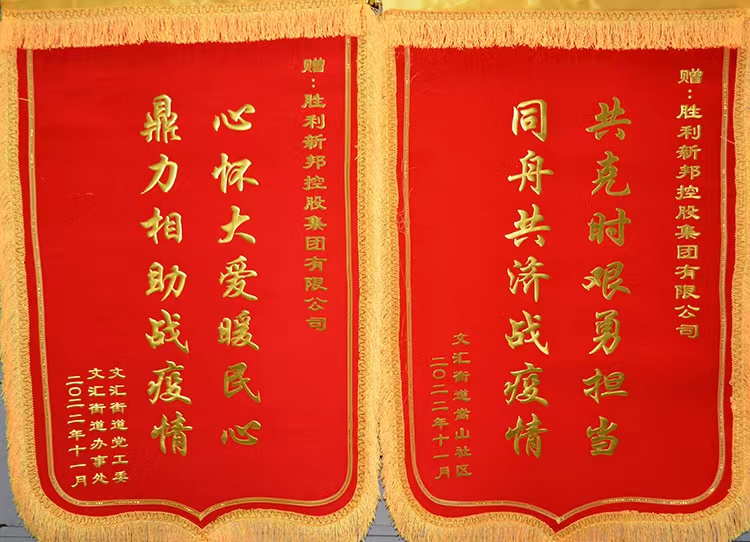 赠：胜利新邦控股集团有限公司
心怀大爱暖民心
鼎力相助战疫情
文汇街道党工委
文汇街道办事处
二〇二二年十一月
赠：胜利新邦控股集团有限公司
共克时艰勇担当
同舟共济战疫情
文汇街道嵩山社区
二〇二二年十一月